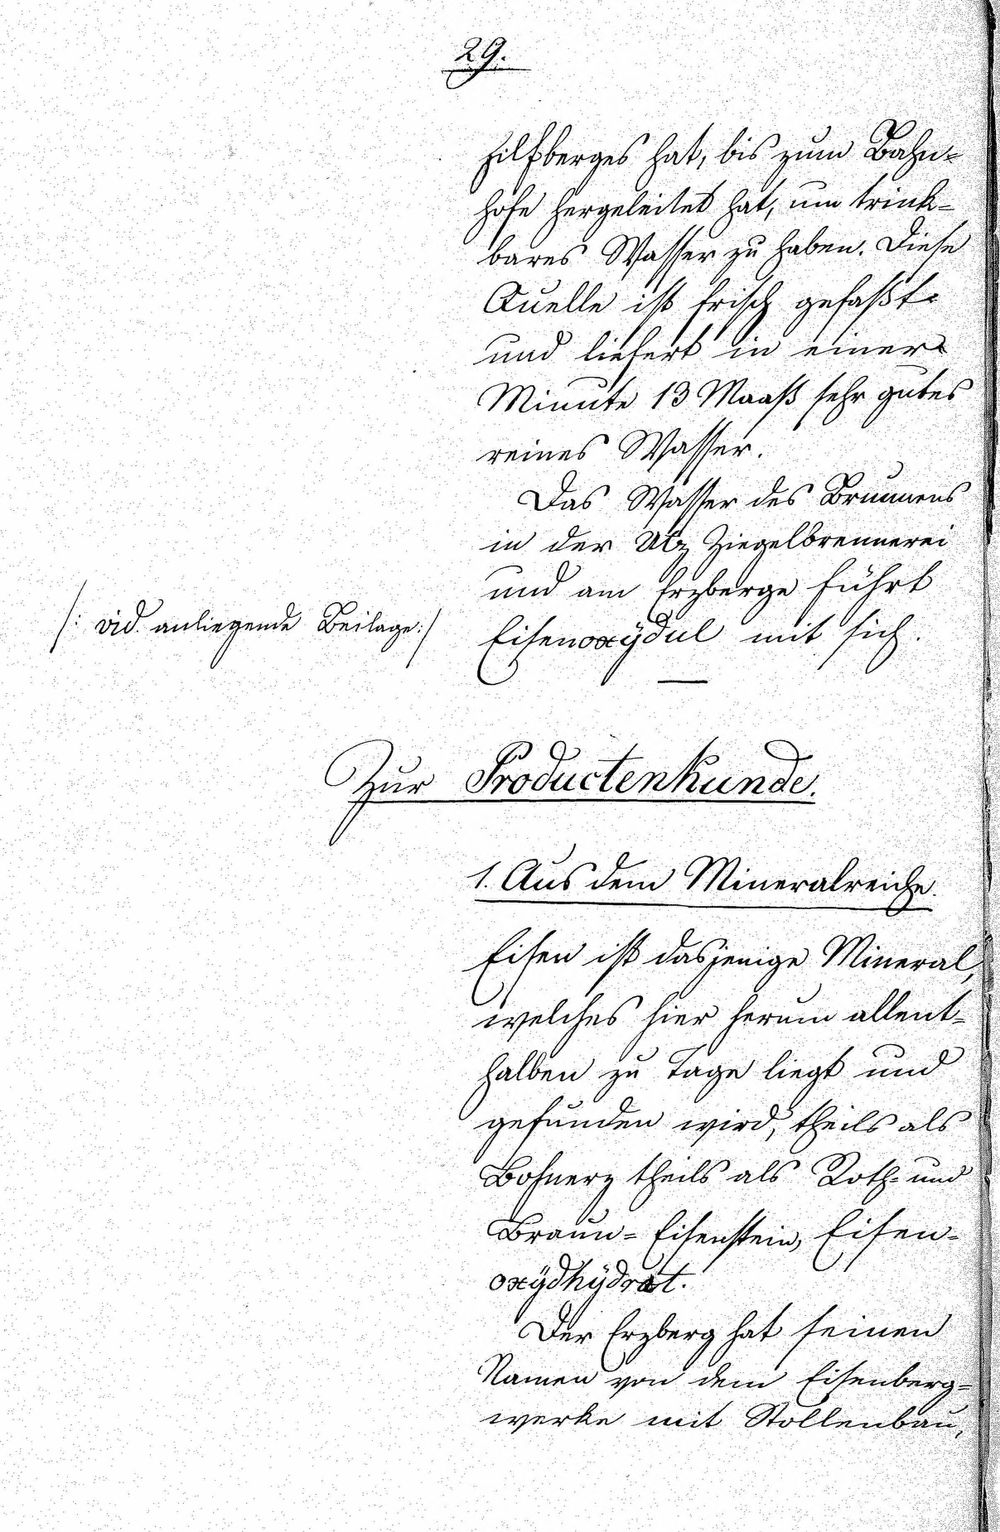 29.
Hilfberges hat, bis zum Bahn=
hofe hergeleitet hat, um trink=
bares Wasser zu haben. Diese
Quelle ist frisch gefaßt
und liefert in einer
Minute 13 Maaß sehr gutes
reines Wasser.
Das Wasser des Brunnens
in der Utz Ziegelbrennerei
und am Erzberge führt
/: vid. anliegende Beilage :/
Eisenoxÿdul mit sich.
Zur Productenkunde.
1. Aus dem Mineralreiche.
Eisen ist dasjenige Mineral,
welches hier herum allent=
halben zu Tage liegt und
gefunden wird, theils als
Bohnerz theils als Roth= und
Braun= Eisenstein, Eisen=
oxÿdhÿdrat.
Der Erzberg hat seinen
Namen von dem Eisenberg=
werke mit Stollenbau,